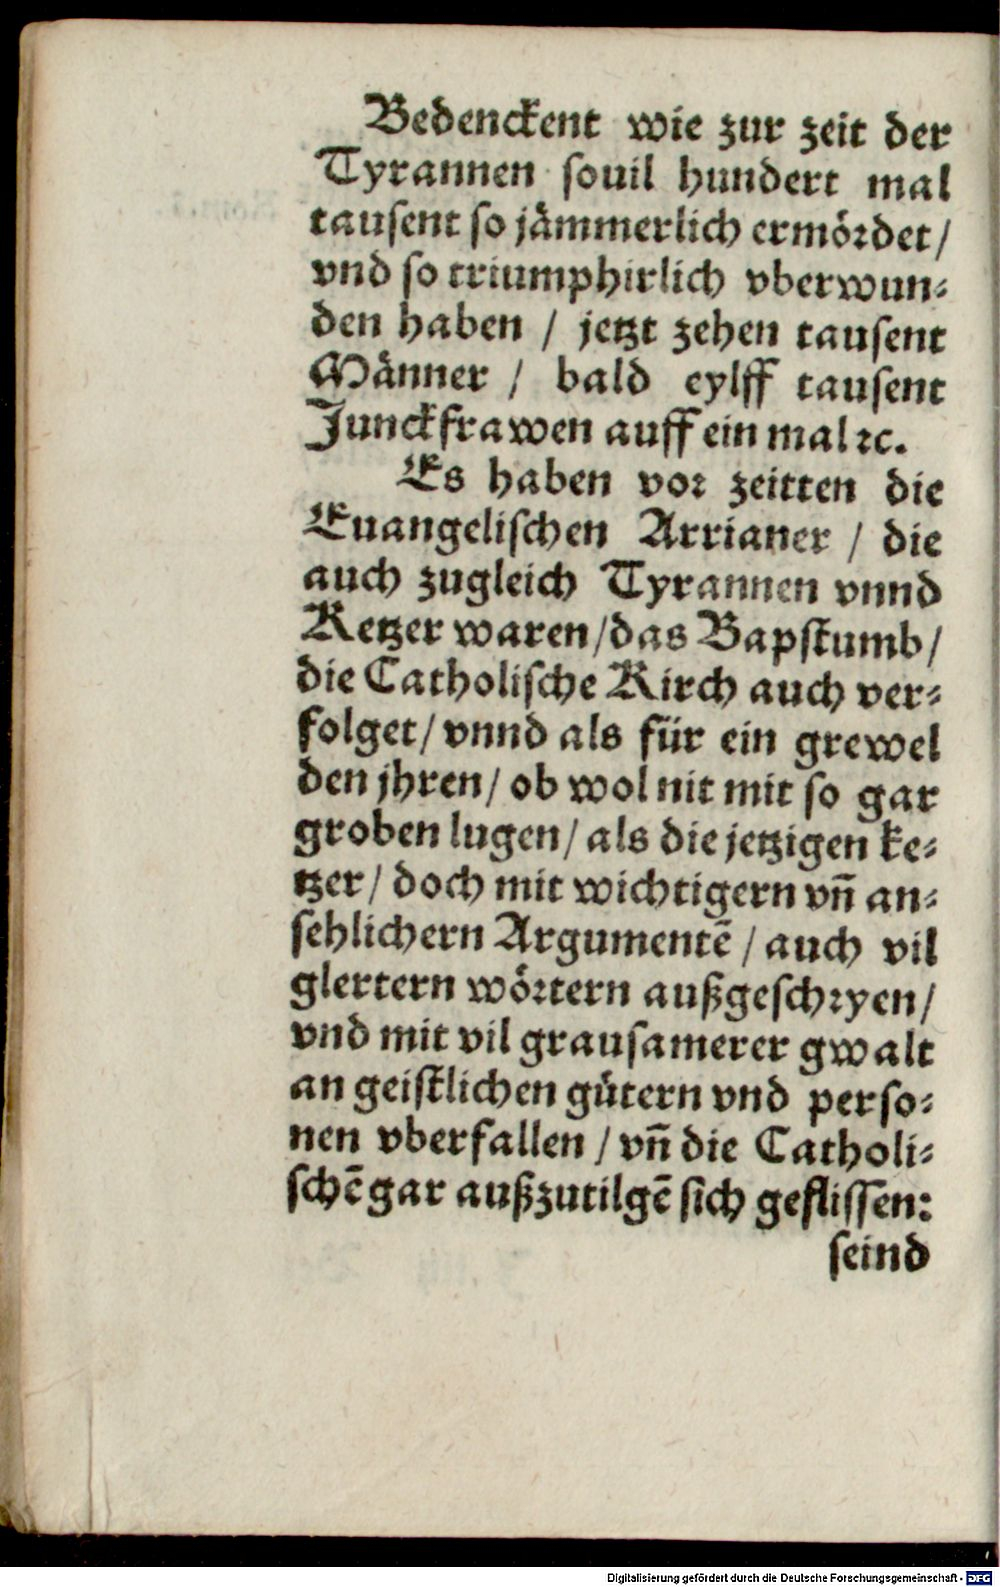 Bedenckent wie zur zeit der
Tyrannen souil hundert mal
tausent so jämmerlich ermördet/
vnd so triumphirlich vberwun⸗
den haben / jetzt zehen tausent
Männer / bald eylff tausent
Junckfrawen auff ein mal ꝛc.
Es haben vor zeitten die
Euangelischen Arrianer / die
auch zugleich Tyrannen vnnd
Ketzer waren/das Bapstumb/
die Catholische Kirch auch ver⸗
folget/ vnnd als für ein grewel
den jhren/ ob wol nit mit so gar
groben lugen/ als die jetzigen ke⸗
tzer/ doch mit wichtigern vn̄ an⸗
sehlichern Argumentē / auch vil
glertern wörtern außgeschryen/
vnd mit vil grausamerer gwalt
an geistlichen gütern vnd perso⸗
nen vberfallen / vn̄ die Catholi⸗
schē gar außzutilgē sich geflissen:
seind
Digitalisierung gefördert durch die Deutsche Forschungsgemeinschaft - DFG